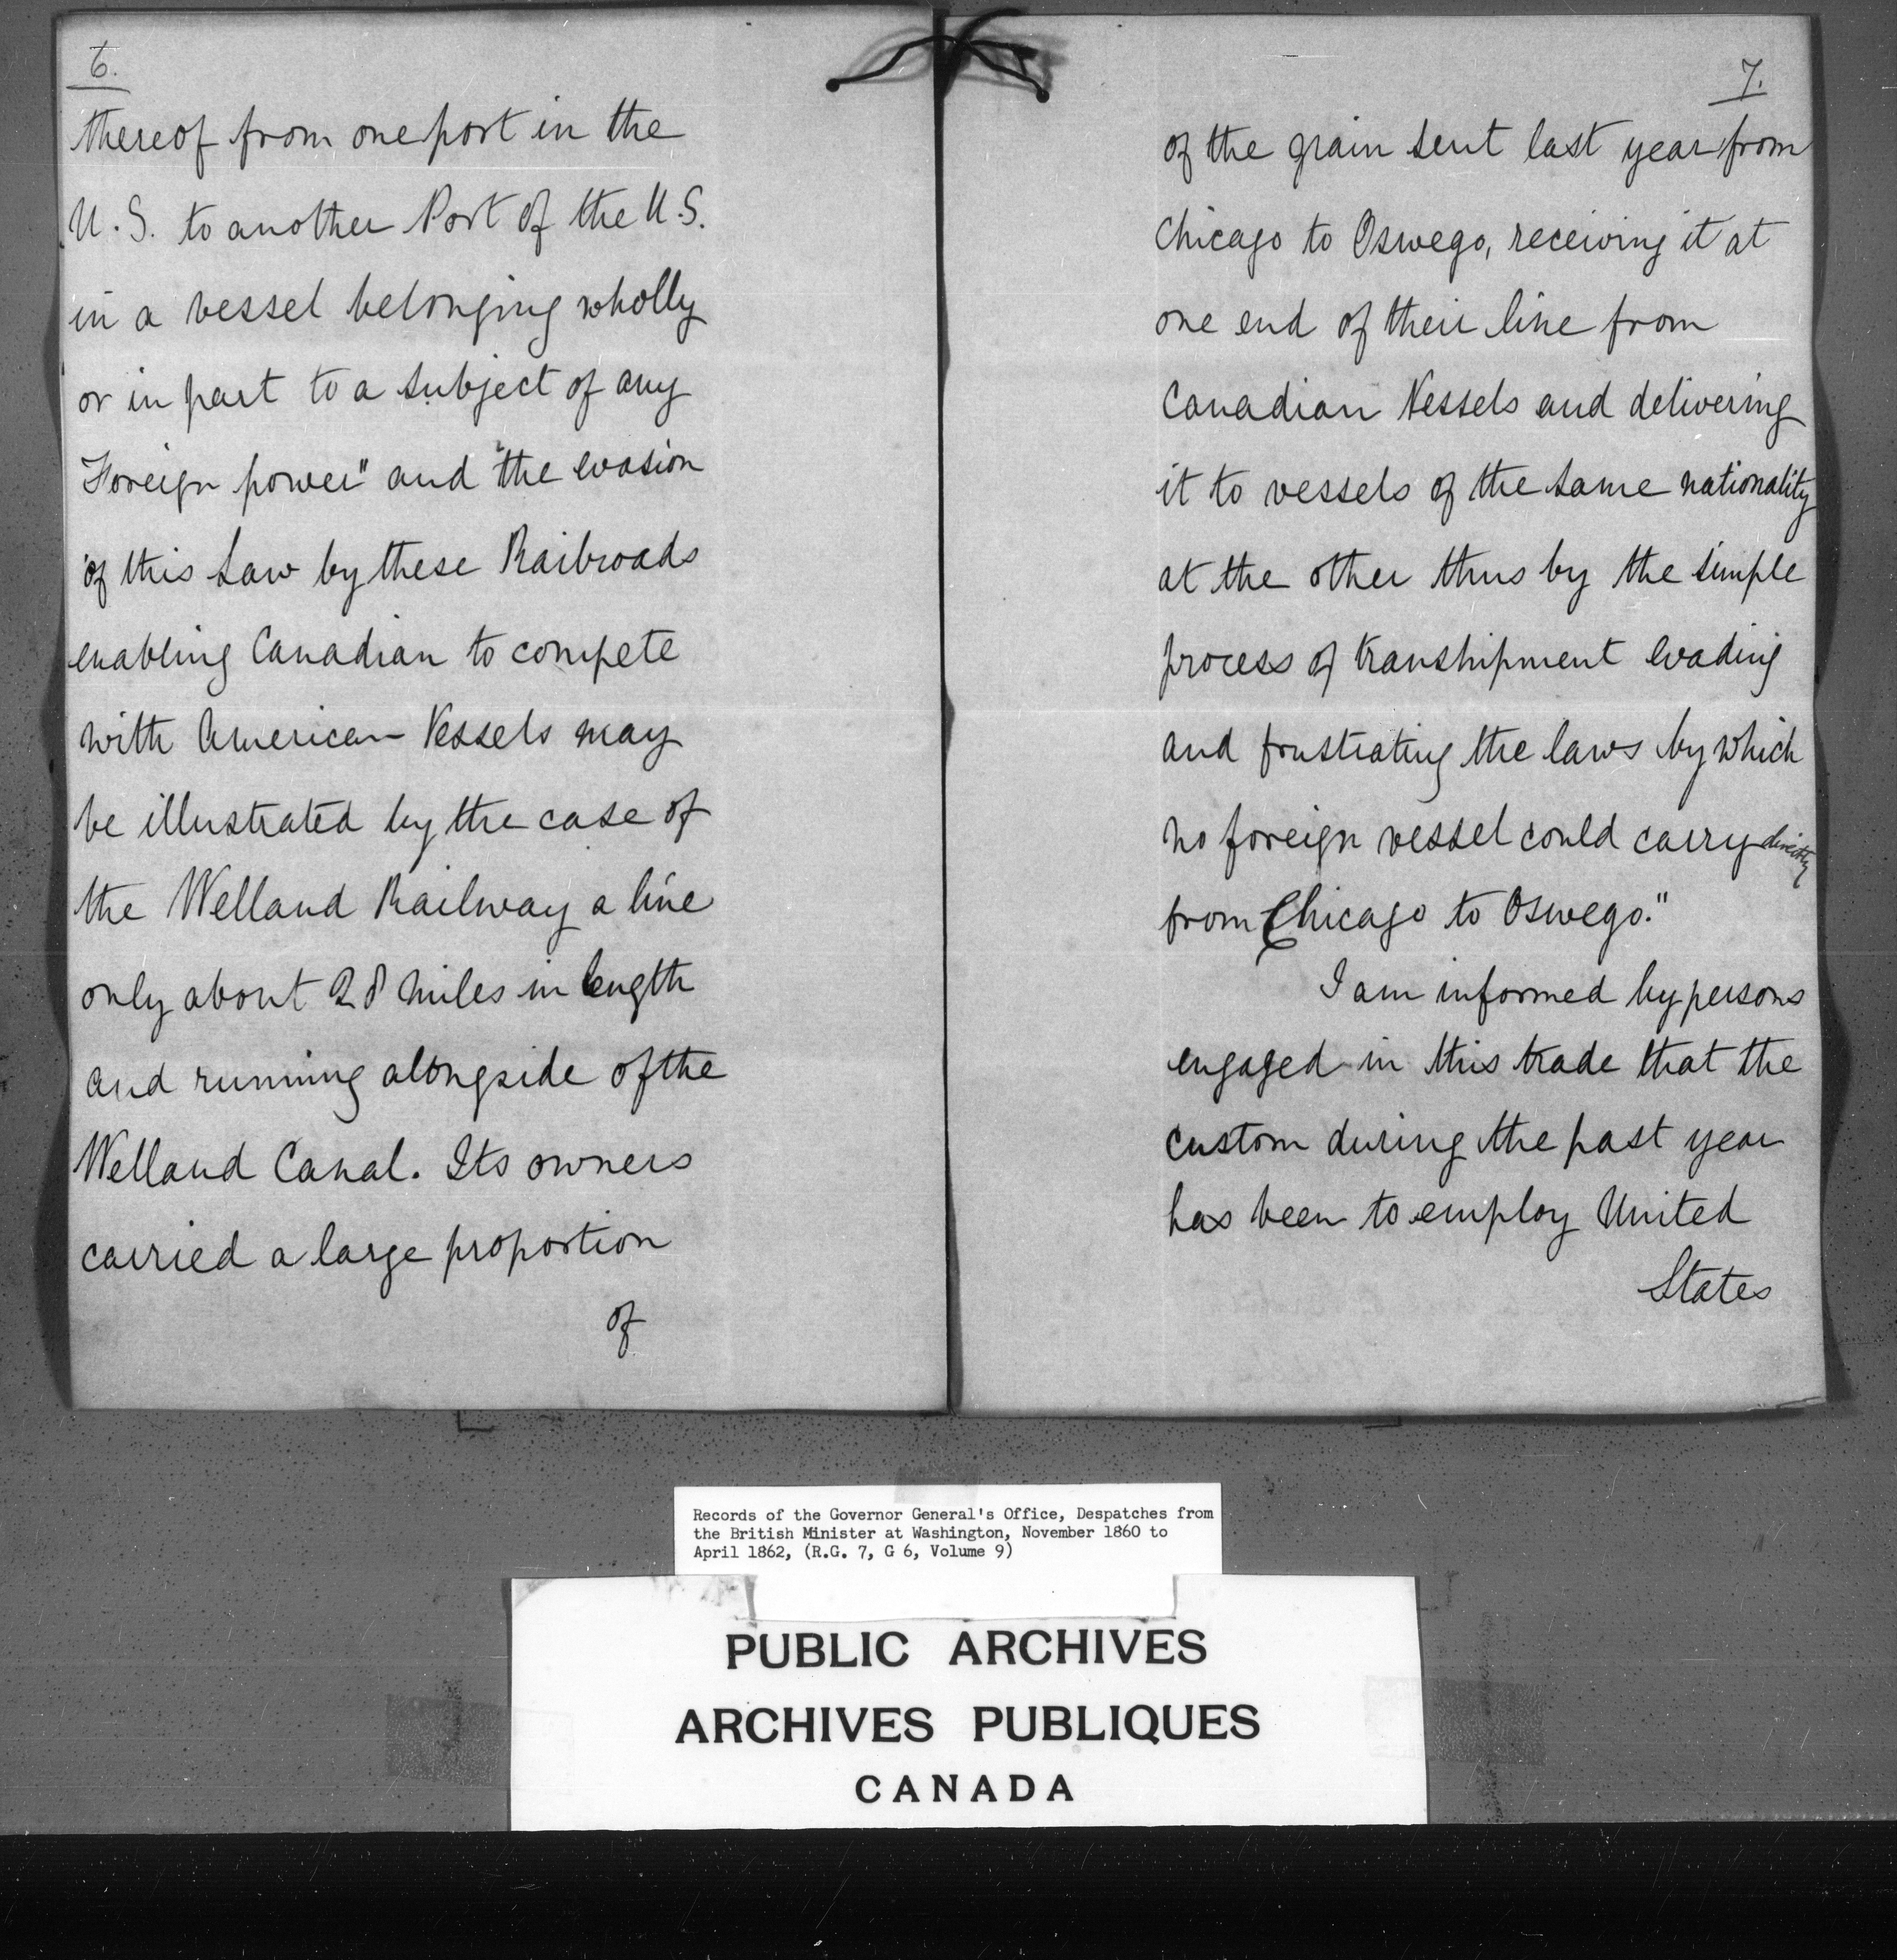 6.
thereof from one port in the
U.S. to another Port of the U.S.
in a vessel belonging wholly
or in part to a subject of any
Foreign power" and "the evasion
of this Law by these Railroads
enabling Canadian to compete
with American Vessels may
be illustrated by the case of
the Welland Railway a line
only about 28 miles in length
and running alongside of the
Welland Canal. Its owners
carried a large proportion
of
7.
of the grain sent last year from
Chicago to Oswego, receiving it at
one end of their line from
Canadian Vessels and delivering
it to vessels of the same nationality
at the other thus by the simple
process of transhipment evading
and frustrating the laws by which
no foreign vessel could carry directly
from Chicago to Oswego."
I am informed by persons
engaged in this trade that the
custom during the past year
has been to employ United
States
Records of the Governor General's Office, Despatches from
the British Minister at Washington, November 1860 to
April 1862, (R.G. 7, G 6, Volume 9)
PUBLIC ARCHIVES
ARCHIVES PUBLIQUES
CANADA